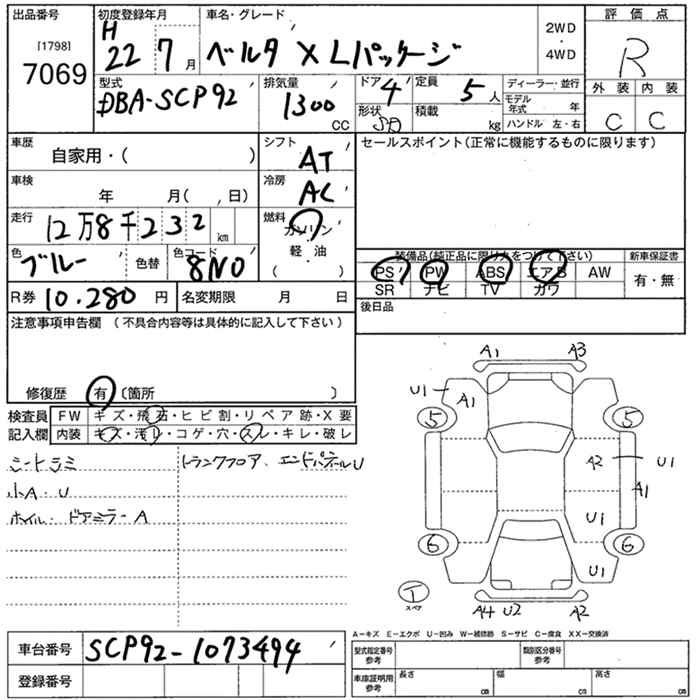 出品番号 初度登録年月 車名・グレード 評価点
[1798] 7069 H 22 7月 ベルタ X Lパッケージ 2WD・4WD R
型式 排気量 ドア 4 定員 5人 ディーラー・並行 外装 内装
DBA-SCP92 1300 CC 形状 SD 積載 kg モデル年式 年 C C
ハンドル 左・右
車歴 自家用・( ) シフト AT セールスポイント(正常に機能するものに限ります)
車検 年 月( , 日) 冷房 AC
走行 12万8千232 km 燃料 ガソリン
軽・油
( )
色 ブルー 色替 色コード 8N0 装備品(純正品に限け丸をつけて下さい) 新車保証書
PS PW ABS エアB AW 有・無
SR ナビ TV カワ
R券 10,280 円 名変期限 月 日 後日品
注意事項申告欄 (不具合内容等は具体的に記入して下さい)
修復歴 有 〔箇所 〕
検査員 FW キズ・飛石・ヒビ割・リペア跡・X要
記入欄 内装 キズ・汚レ・コゲ・穴・スレ・キレ・破レ
シートシミ トランクフロア、エンドパネルU
小A・U
ホイル・ドアミラーA
A1 A3
U1 A1
5 5
A2 U1
A1
U1
6 6
U1
T
スペア
A4 U2 A2
A−キズ E−エクボ U−凹み W−補修跡 S−サビ C−腐食 XX−交換済
車台番号 SCP92-1073494 型式指定番号 参考 類別区分番号 参考
登録番号 車庫証明用 参考 長さ cm 幅 cm 高さ cm